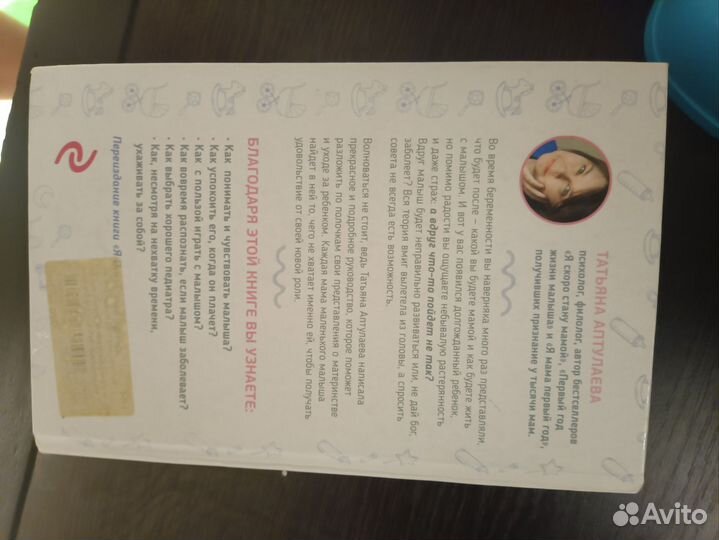 ТАТЬЯНА АПТУЛАЕВА
психолог, филолог, автор бестселлеров
«Я скоро стану мамой», «Первый год
жизни малыша» и «Я мама первый год»,
получивших признание у тысячи мам.
Во время беременности вы наверняка много раз представляли,
что будет после – какой вы будете мамой и как будете жить
с малышом. И вот у вас появился долгожданный ребенок,
но помимо радости вы ощущаете небывалую растерянность
и даже страх: а вдруг что-то пойдет не так?
Вдруг малыш будет неправильно развиваться или, не дай бог,
заболеет? Вся теория вмиг вылетела из головы, а спросить
совета не всегда есть возможность.
Волноваться не стоит, ведь Татьяна Аптулаева написала
прекрасное и подробное руководство, которое поможет
разложить по полочкам свои представления о материнстве
и уходе за ребенком. Каждая мама маленького малыша
найдет в ней то, чего не хватает именно ей, чтобы получать
удовольствие от своей новой роли.
БЛАГОДАРЯ ЭТОЙ КНИГЕ ВЫ УЗНАЕТЕ:
• Как понимать и чувствовать малыша?
• Как успокоить его, когда он плачет?
• Как с пользой играть с малышом?
• Как вовремя распознать, если малыш заболевает?
• Как выбрать хорошего педиатра?
• Как, несмотря на нехватку времени,
ухаживать за собой?
Переиздание книги «Я
Avito